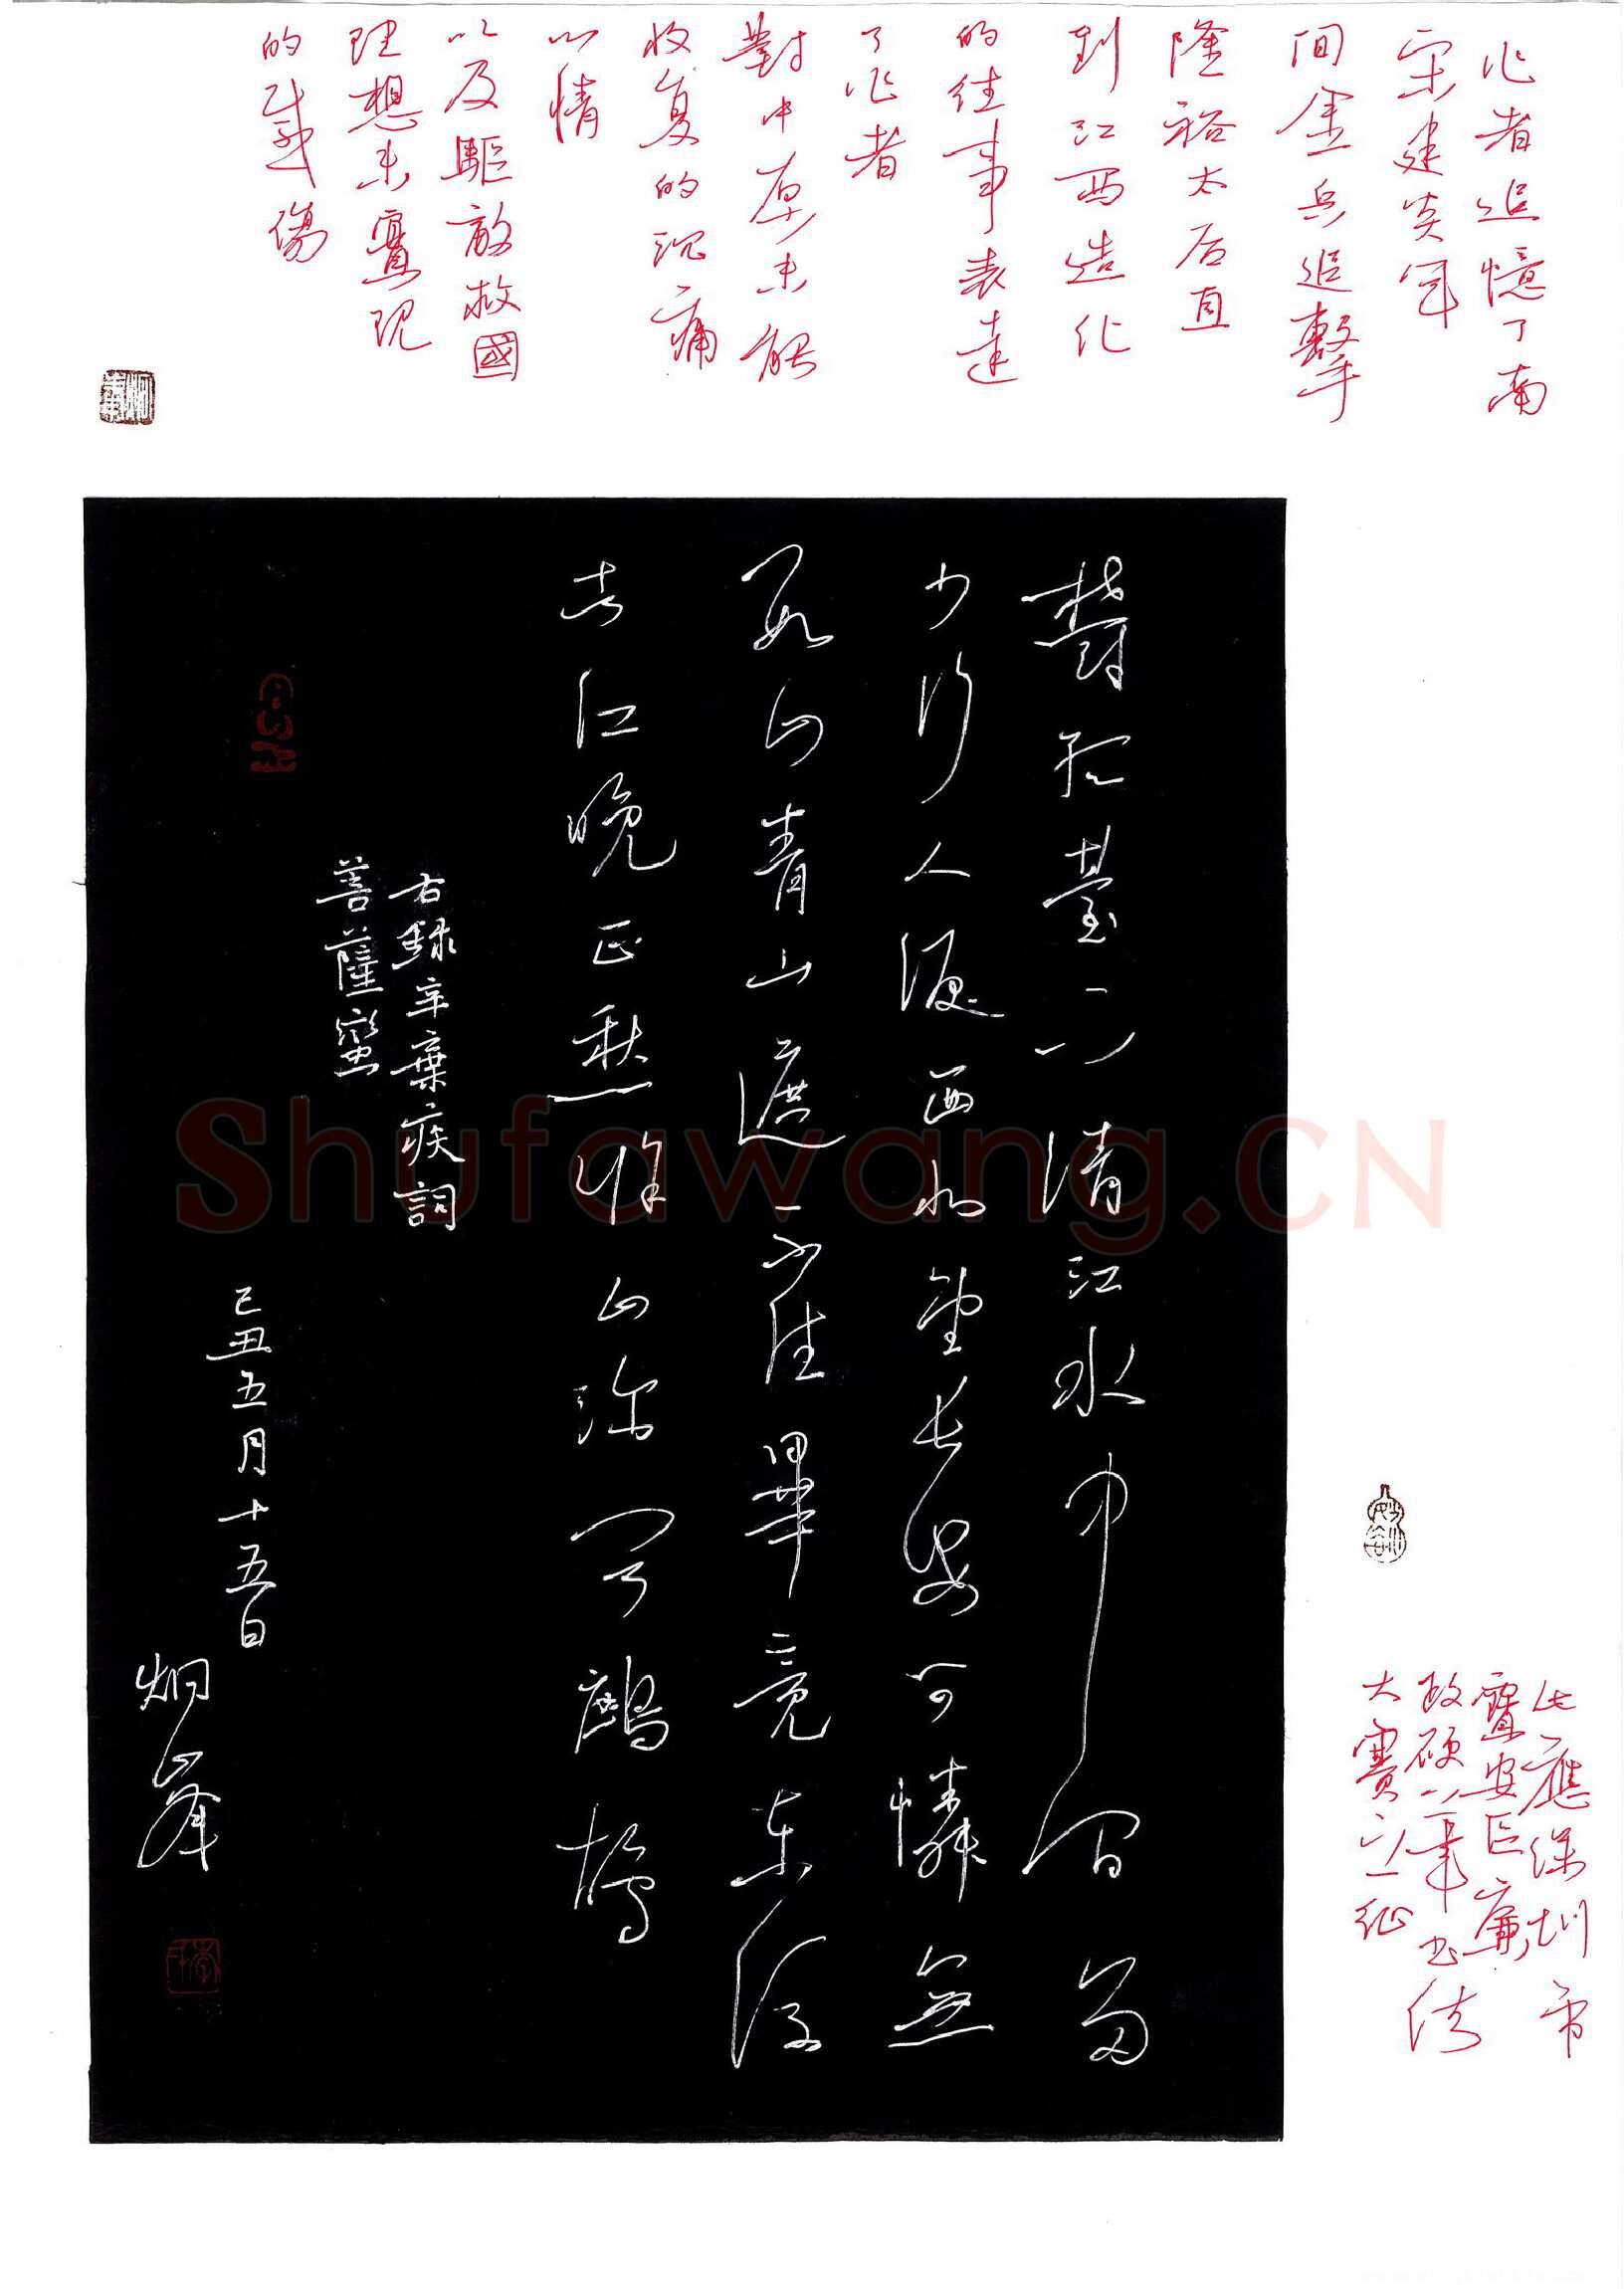 作者追憶了南
宋建炎年
间金兵追擊
隆裕太后直
到江西造化
的往事表達
了作者
對中原未能
收复的沉痛
心情
以及驅敵救國
理想未實現
的感傷
鬱孤臺下清江水中间多
少行人淚西北望長安可憐無
數山青山遮不住畢竟东流
去江晚正愁山深闻鷓鴣
右録辛棄疾詞
菩薩蠻
己丑五月十五日
炯峰
此應深圳市
寶安区廉
政硬筆书法
大賽之征
Shufawang.CN